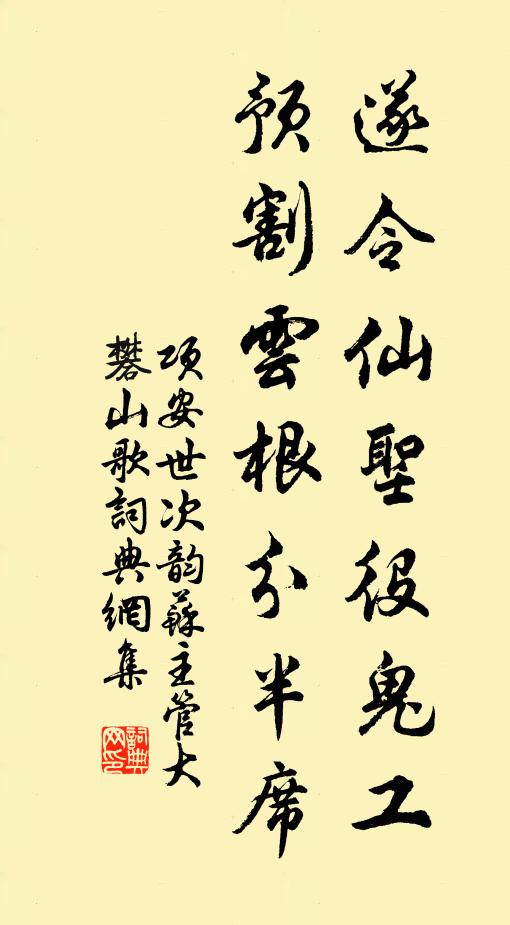 遂令仙聖役鬼工
預割雲根分半席
項安世次韵蘇主管大
礬山歌詞典網集
詞典
网印